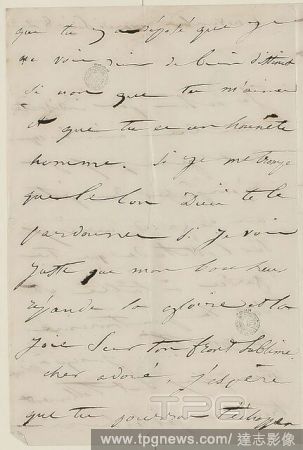 que tu y a déposé que je
ne vois rien de bien distinct
si non que tu m'aimes
et que tu es un honnête
homme. Si je me trompe
que le bon Dieu te le
pardonne si je vois
juste que mon bonheur
répande la gloire et la
joie sur ton front sublime
cher adoré, j'espère
que tu pourras
TPG
www.tpgnews.com/達志影像